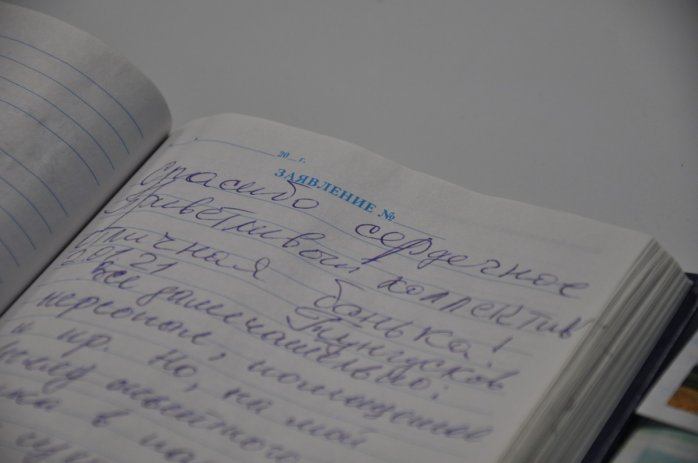 20 г.
ЗАЯВЛЕНИЕ №
Спасибо сердечное
Приветливый коллектив
отличная банька!
Тунгусков
2.01.21
Все замечательно:
персонал, помещение
и пр. Но, на мой
ответного
в